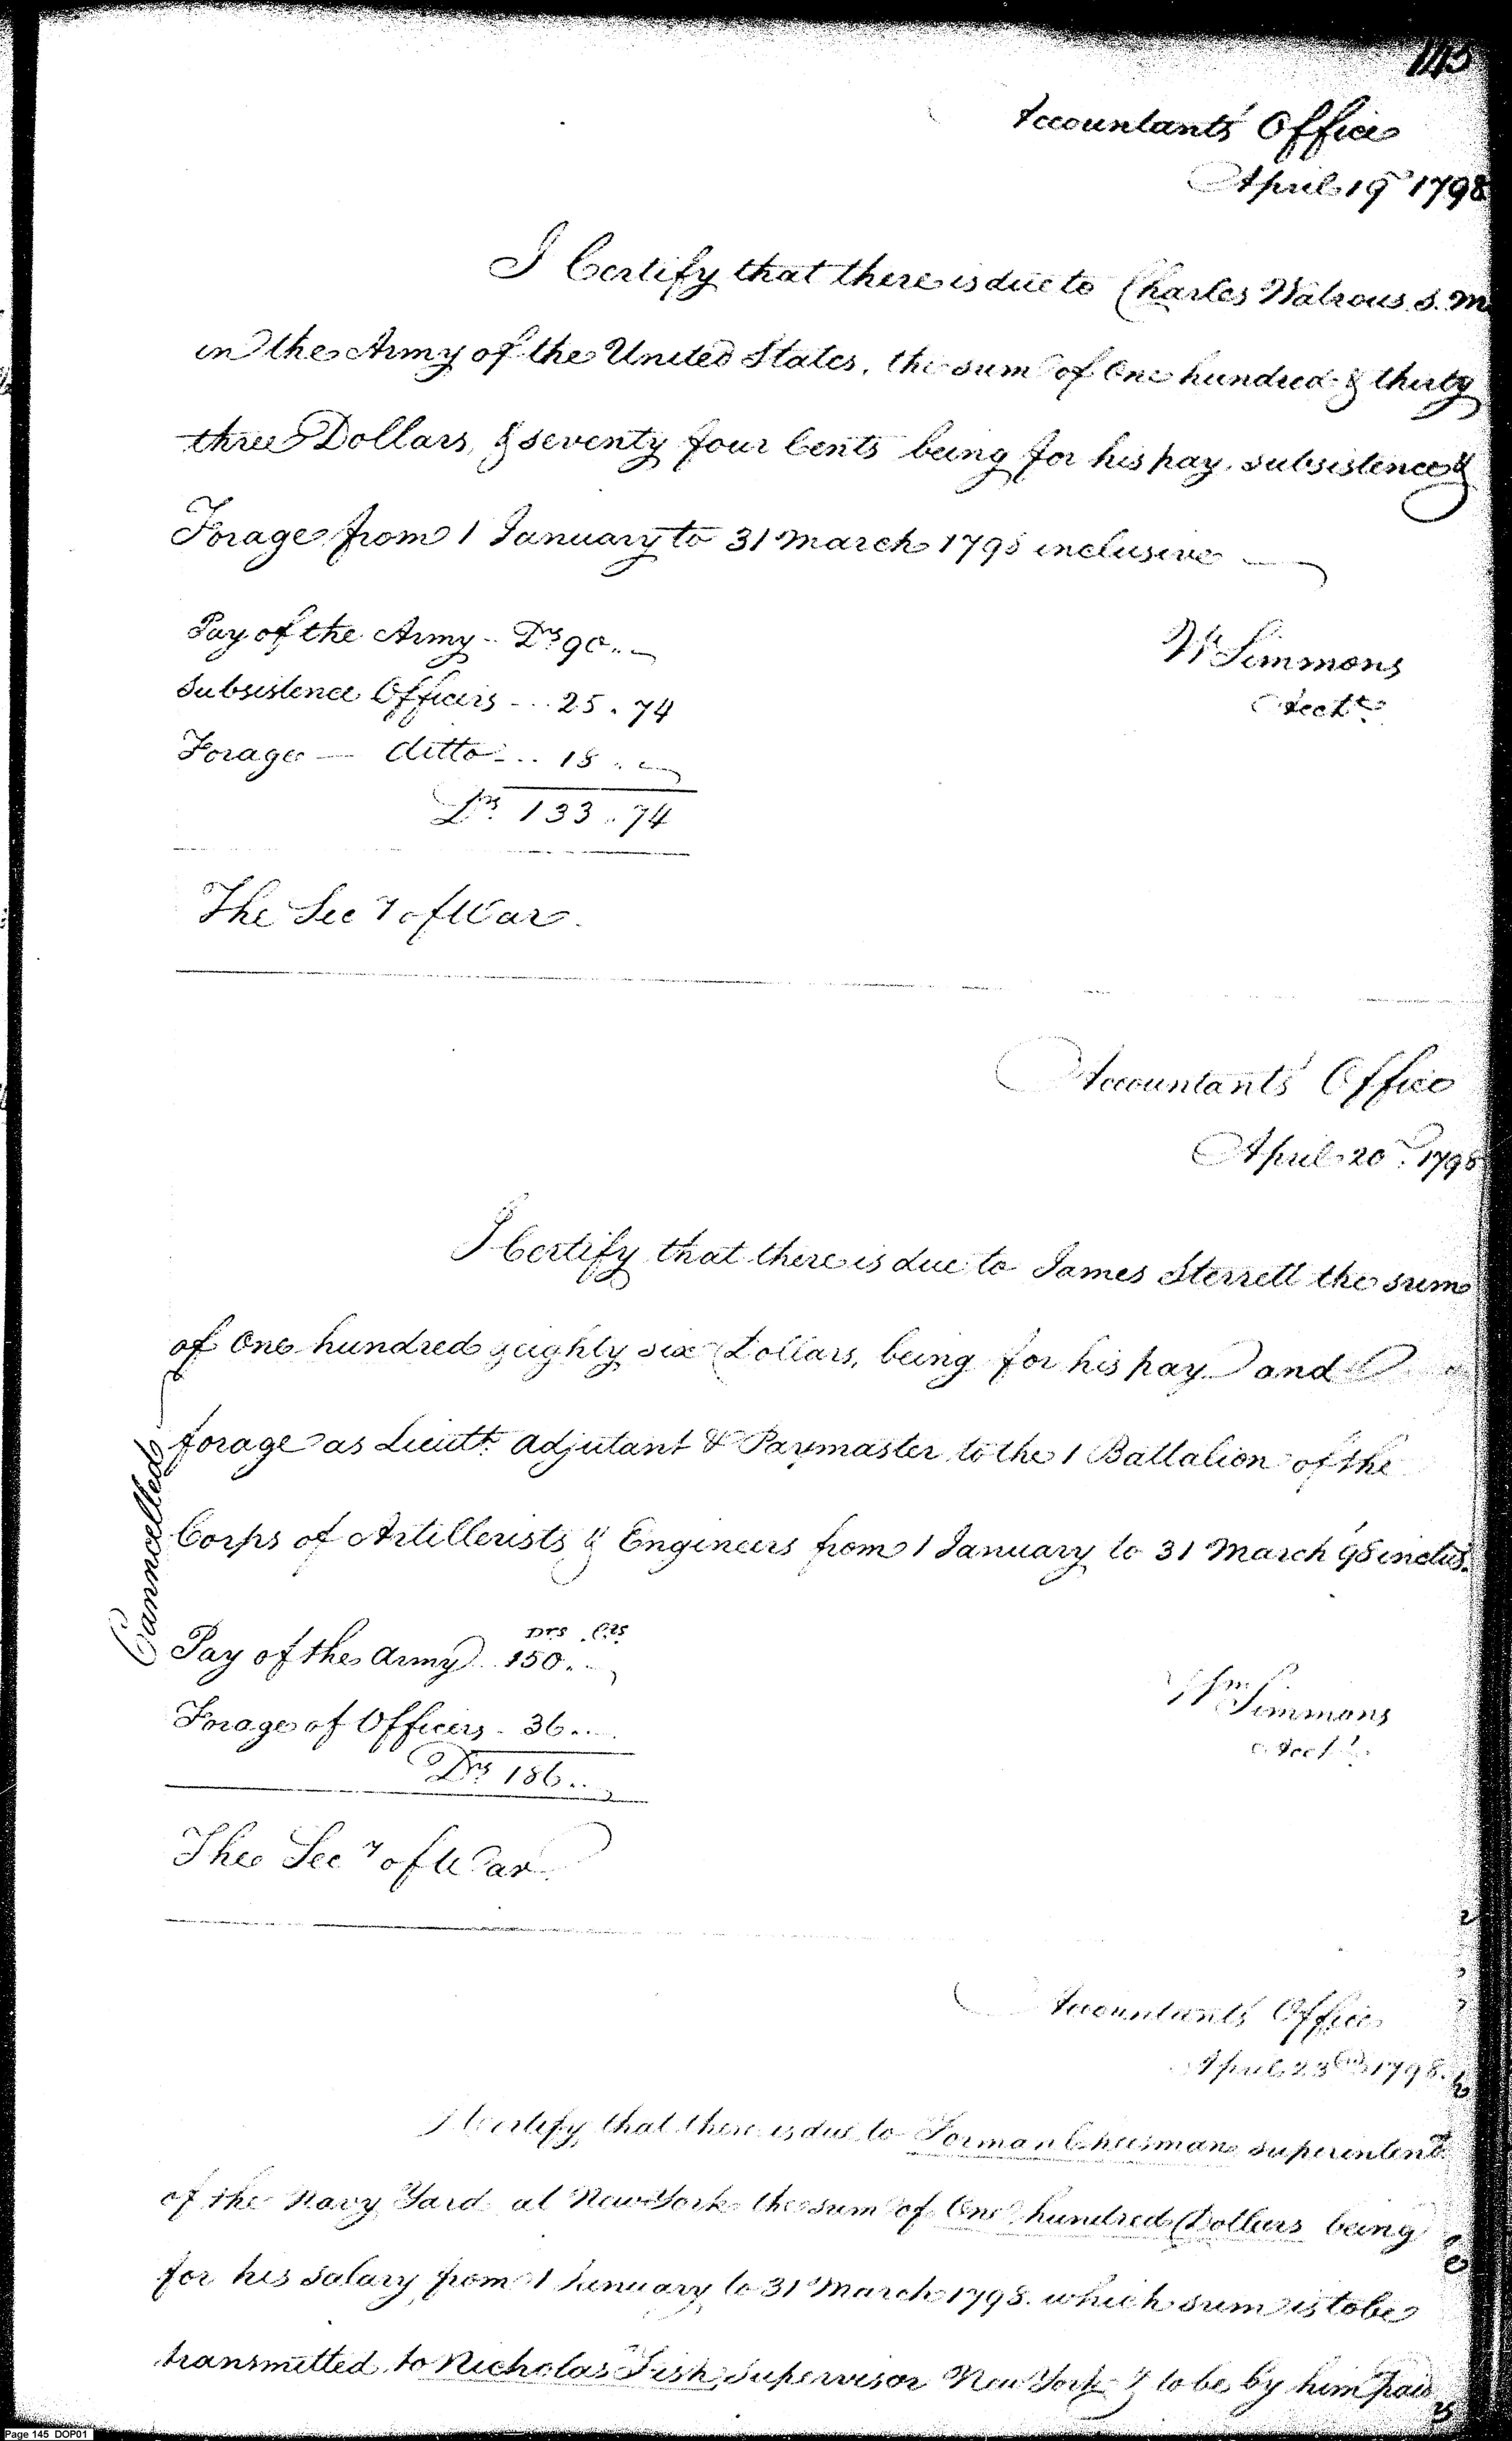 145
Accountants' Office
April 19th 1798
I Certify that there is due to Charles Watrous S. M
in the Army of the United States, the sum of One hundred & thirty
three Dollars, & seventy four Cents being for his pay, subsistence &
Forage from 1 January to 31 March 1798 inclusive
Pay of the Army - Drs 90..
Wm Simmons
Subsistence Officers - .. 25 . 74
Acct.
Forage — ditto - .. 18 ..
Drs 133 . 74
The Secy of War.
Accountants' Office
April 20th 1798
I Certify that there is due to James Sterrett the sum
of One hundred & eighty six Dollars, being for his pay and
forage as Lieutt. adjutant & Paymaster to the 1 Battalion of the
Corps of Artillerists & Engineers from 1 January to 31 March '98 inclus.
Canncelled
Drs Cts
Pay of the Army .. 150..
Wm Simmons
Forage of Officers - 36...
Acct.
Drs 186..
The Secy of War
Accountants' Office
April 23rd 1798.
I Certify that there is due to Forman Cheesman superintendt.
of the Navy Yard at New York the sum of One hundred Dollars being
for his salary from 1 January to 31 March 1798. which sum is to be
transmitted to Nicholas Fish, Supervisor New York & to be by him paid
Page 145 DOP01